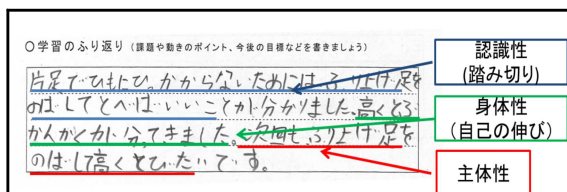 ○学習のふり返り（課題や動きのポイント、今後の目標などを書きましょう）
片足でひもにひっかからないためには、ふり上げ足を
のばしてとべばいいことが分かりました。高くとぶ
かんかくが分ってきました。次回もふり上げ足を
のばして高くとびたいです。
認識性
(踏み切り)
身体性
(自己の伸び)
主体性